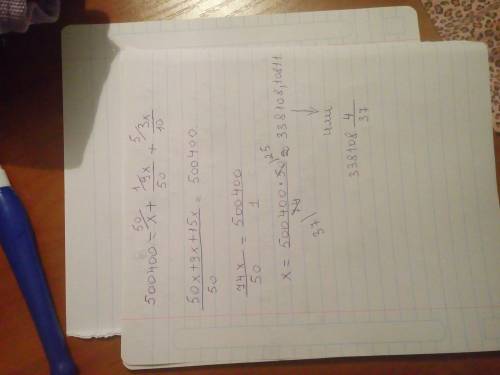 500400 = ⁵⁰/x + ¹/9x/50 + ⁵/3x/10
50x+9x+15x/50 = 500400
74x/50 = 500400/1
x = 500400 · 50 ²⁵/74 37 ≈ 338108,10811
↓
или
338108 4/37